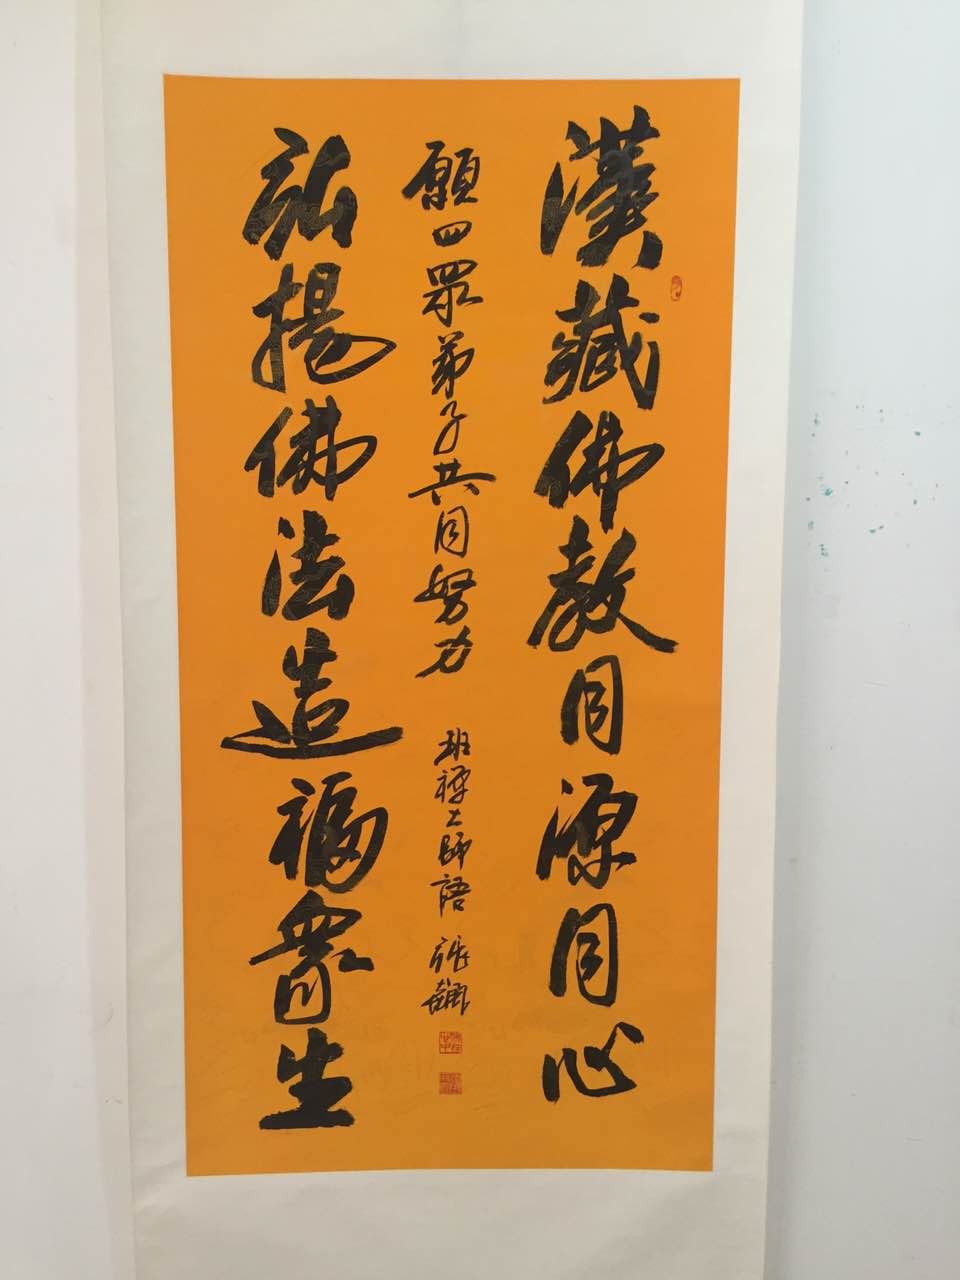 漢藏佛教同源同心
願四眾弟子共同努力
班禪大師語 張飆
弘揚佛法造福眾生